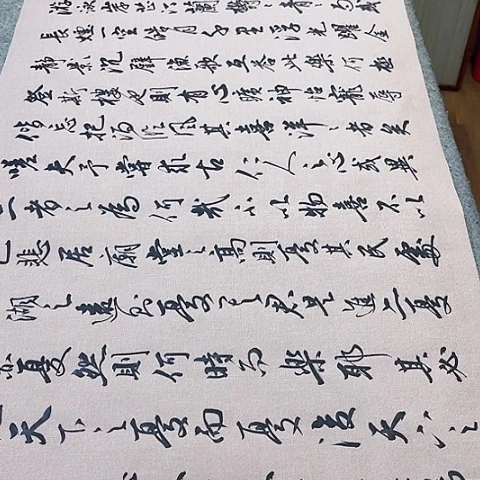 游泳岸芷汀蘭郁々青々而或
長煙一空皓月千里浮光躍金
靜影沉璧漁歌互答此樂何極
登斯樓也則有心曠神怡寵辱
偕忘把酒臨風其喜洋洋者矣
嗟夫予嘗求古仁人之心或異
二者之為何哉不以物喜不以
己悲居廟堂之高則憂其民處
湖之遠則憂其君是進亦憂
亦憂然則何時而樂耶其必
天下之憂而憂後天下之